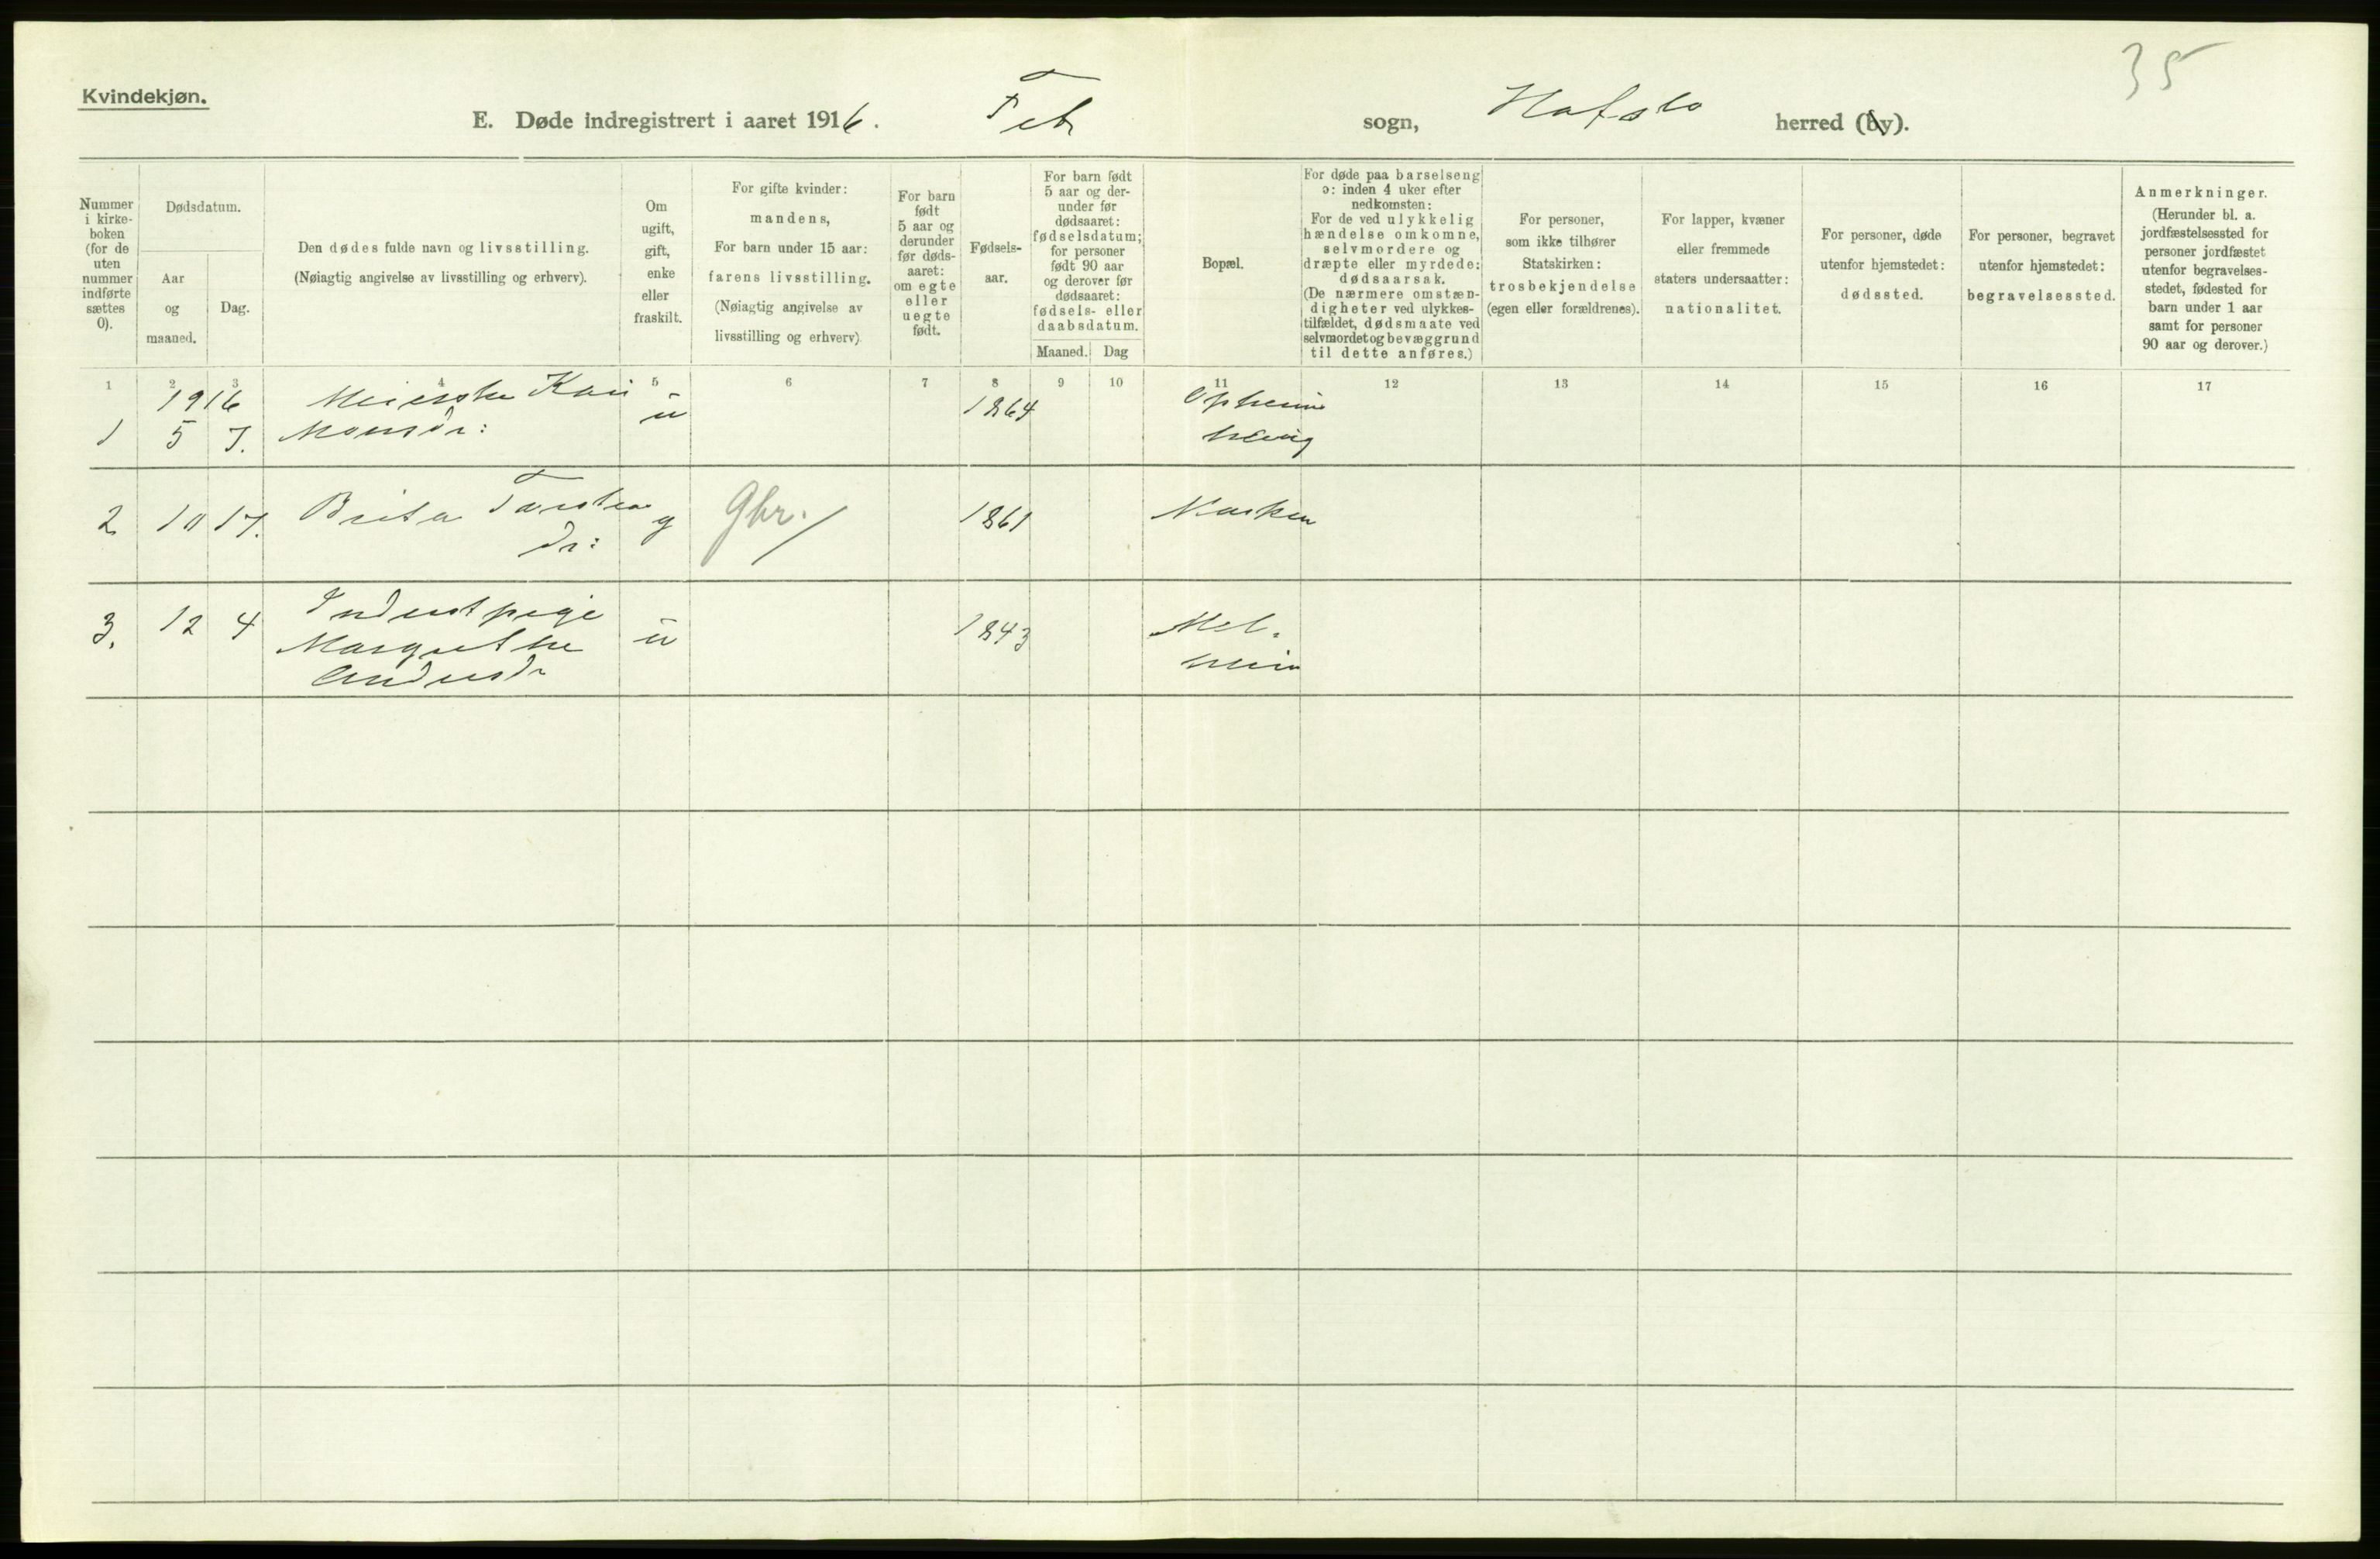 35
Kvindekjøn.
E. Døde indregistrert i aaret 1916. Fet sogn, Hafslo herred (by).
Nummer i kirke-boken (for de uten nummer indførte sættes 0).
Dødsdatum.
Aar og maaned.
Dag.
Den dødes fulde navn og livsstilling.
(Nøiagtig angivelse av livsstilling og erhverv).
Om ugift, gift, enke eller fraskilt.
For gifte kvinder:
mandens,
For barn under 15 aar:
farens livsstilling.
(Nøiagtig angivelse av
livsstilling og erhverv)
For barn født 5 aar og derunder før døds-aaret: om egte eller uegte født.
Fødsels-aar.
For barn født
5 aar og der-
under før
dødsaaret:
fødselsdatum;
for personer
født 90 aar
og derover før
dødsaaret:
fødsels- eller
daabsdatum.
Maaned. Dag
Bopæl.
For døde paa barselseng
ɔ: inden 4 uker efter
nedkomsten:
For de ved ulykkelig
hændelse omkomne,
selvmordere og
dræpte eller myrdede:
dødsaarsak.
(De nærmere omstæn-
digheter ved ulykkes-
tilfældet, dødsmaate ved
selvmordet og bevæggrund
til dette anføres.)
For personer,
som ikke tilhører
Statskirken:
trosbekjendelse
(egen eller forældrenes).
For lapper, kvæner
eller fremmede
staters undersaatter:
nationalitet.
For personer, døde
utenfor hjemstedet:
dødssted.
For personer, begravet
utenfor hjemstedet:
begravelsessted.
Anmerkninger.
(Herunder bl. a.
jordfæstelsessted for
personer jordfæstet
utenfor begravelses-
stedet, fødested for
barn under 1 aar
samt for personer
90 aar og derover.)
1 2 3 4 5 6 7 8 9 10 11 12 13 14 15 16 17
1916 Meierske Kari u 1864 Opheim
1 5 7. Monsdr:
2 10 17. Brita Torsten g Gbr. 1861
dr:
3. 12 4 Inderstpige u 1843 Mel-
Margrethe heim
Andersdr